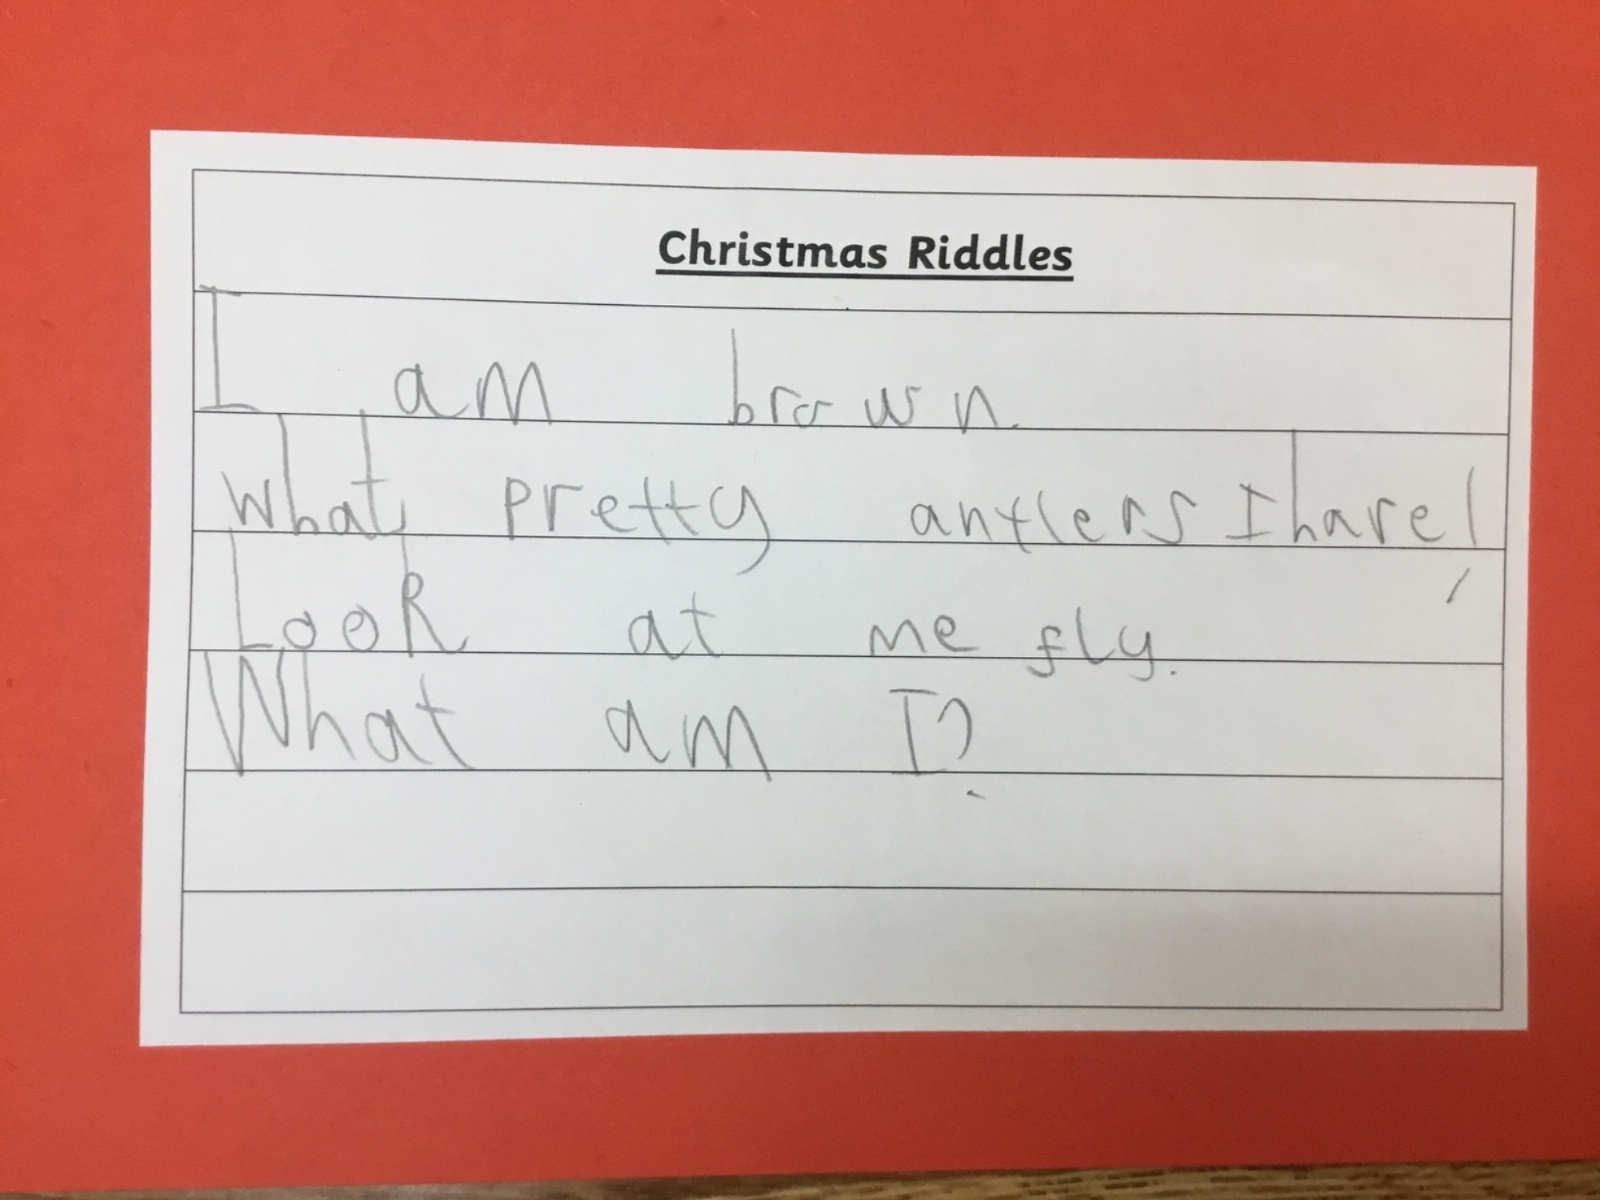 Christmas Riddles
I am brown.
What pretty antlers I have!
Look at me fly.
What am I?